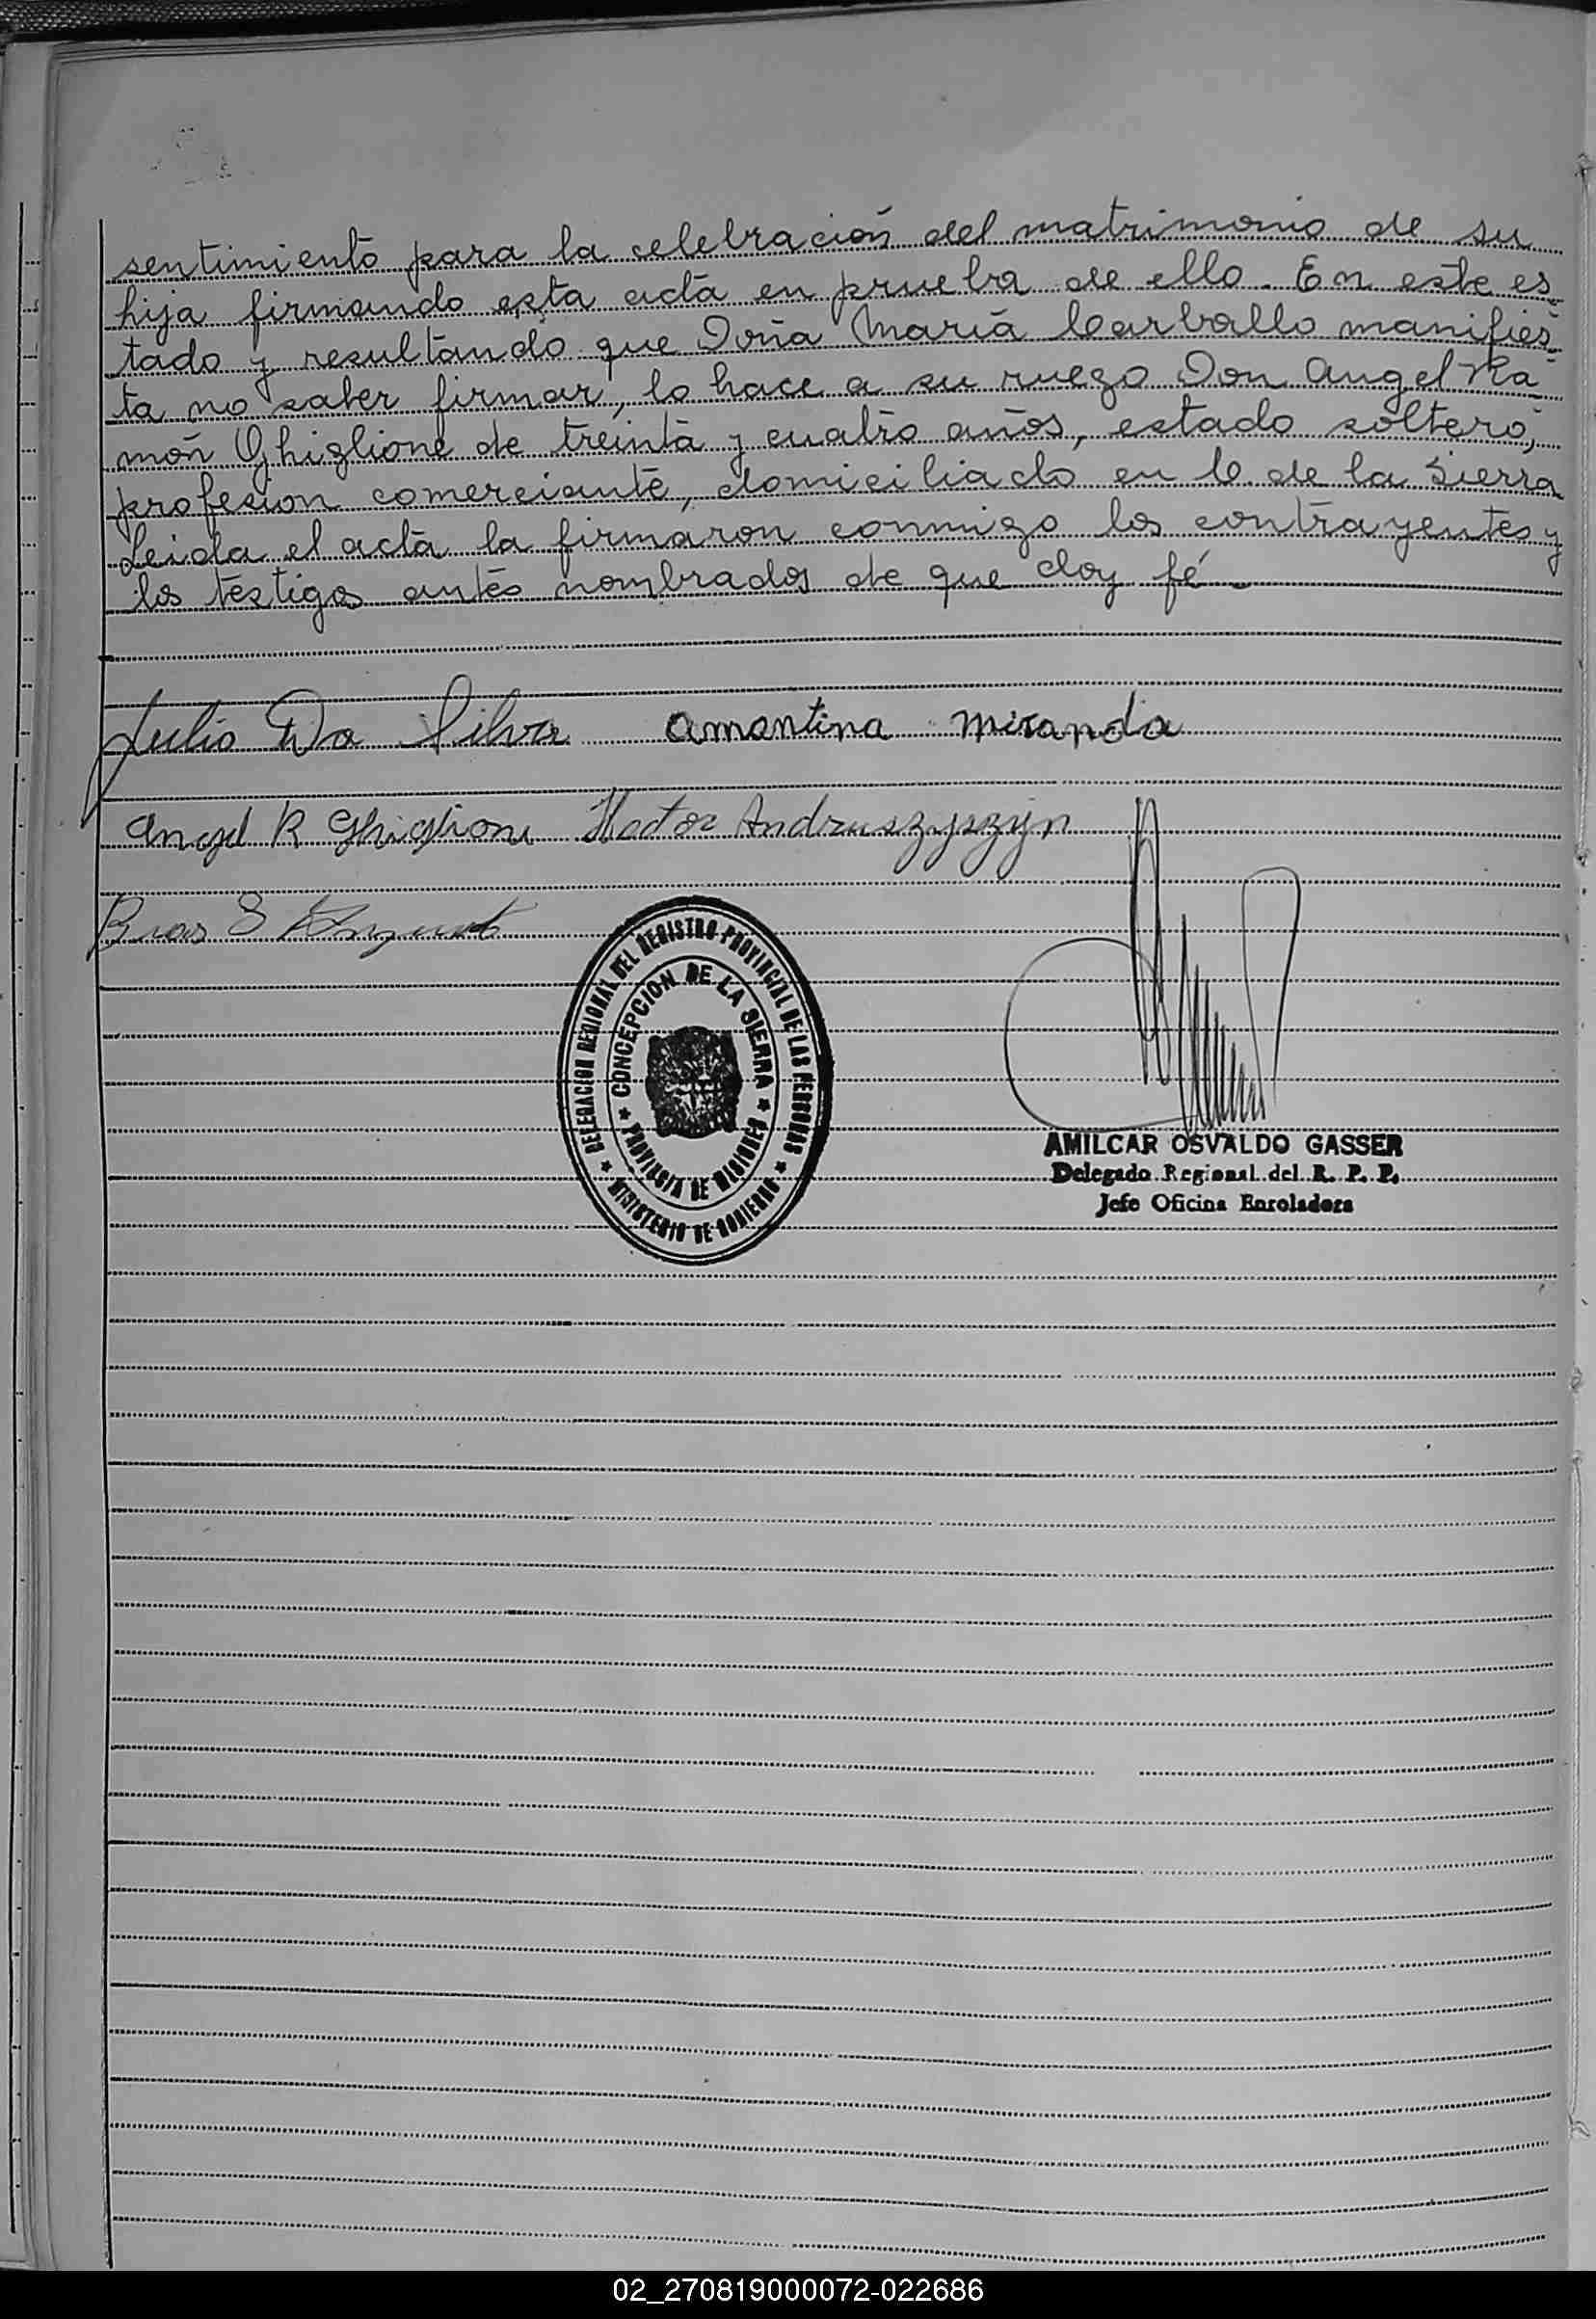 sentimiento para la celebración del matrimonio de su
hija firmando esta acta en prueba de ello. En este es-
tado y resultando que Doña María Carballo manifies-
ta no saber firmar, lo hace a su ruego Don Angel Ra-
món Ghiglione de treinta y cuatro años, estado soltero,
profesion comerciante, domiciliado en C. de la Sierra
Leida el acta la firmaron conmigo los contrayentes y
los testigos antes nombrados de que doy fé-
Julio Da Silva amantina miranda
Angel R Ghiglione Hector Andruszyszyn
Bras S
DELEGACION REGIONAL DEL REGISTRO PROVINCIAL DE LAS PERSONAS
★ MINISTERIO DE GOBIERNO ★
CONCEPCION DE LA SIERRA
★ PROVINCIA DE MISIONES ★
AMILCAR OSVALDO GASSER
Delegado Regional del R. P. P.
Jefe Oficina Enroladora
02_270819000072-022686